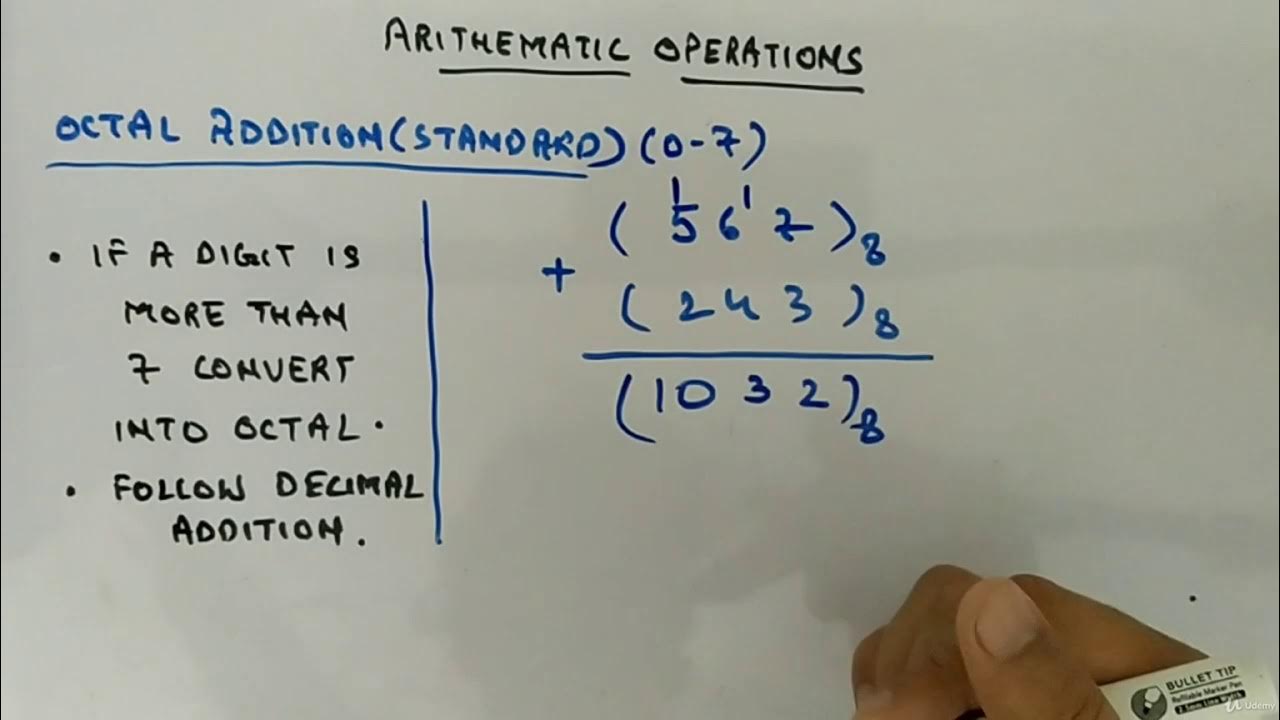 ARITHEMATIC OPERATIONS
OCTAL ADDITION(STANDARD) (0-7)
• IF A DIGIT IS
MORE THAN
7 CONVERT
INTO OCTAL.
• FOLLOW DECIMAL
ADDITION.
1 1
( 5 6 7 )8
+
( 2 4 3 )8
( 1 0 3 2 )8
BULLET TIP
Refillable Marker Pen
Udemy